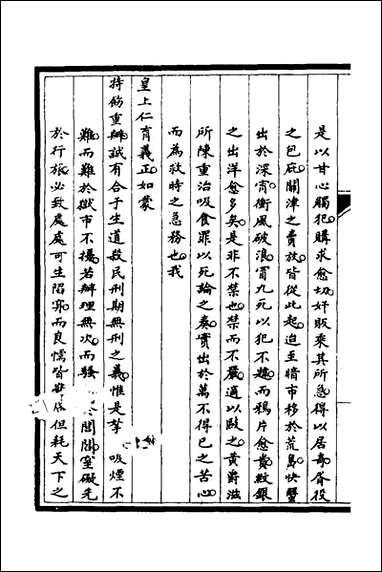 是以甘心觸犯購求愈切奸販乘其所急得以居奇胥役
之包庇關津之賣放皆從此起迫至暗市移於荒島快蟹
出於深宵衝風破浪冒九死以犯不韙而鴉片愈貴紋銀
之出洋愈多矣是非不禁也禁而不嚴適以敺之黃爵滋
所陳重治吸食罪以死論之奏實出於萬不得已之苦心
而為救時之急務也我
皇上仁育義正如蒙
持飭重辦誠有合于生道殺民刑期無刑之義惟是拏 吸煙不
難而難於獄市不擾若辦理無次而騷 閭閻窒礙先
於行旅必致處處可生陷穽而良懦皆 但耗天下之